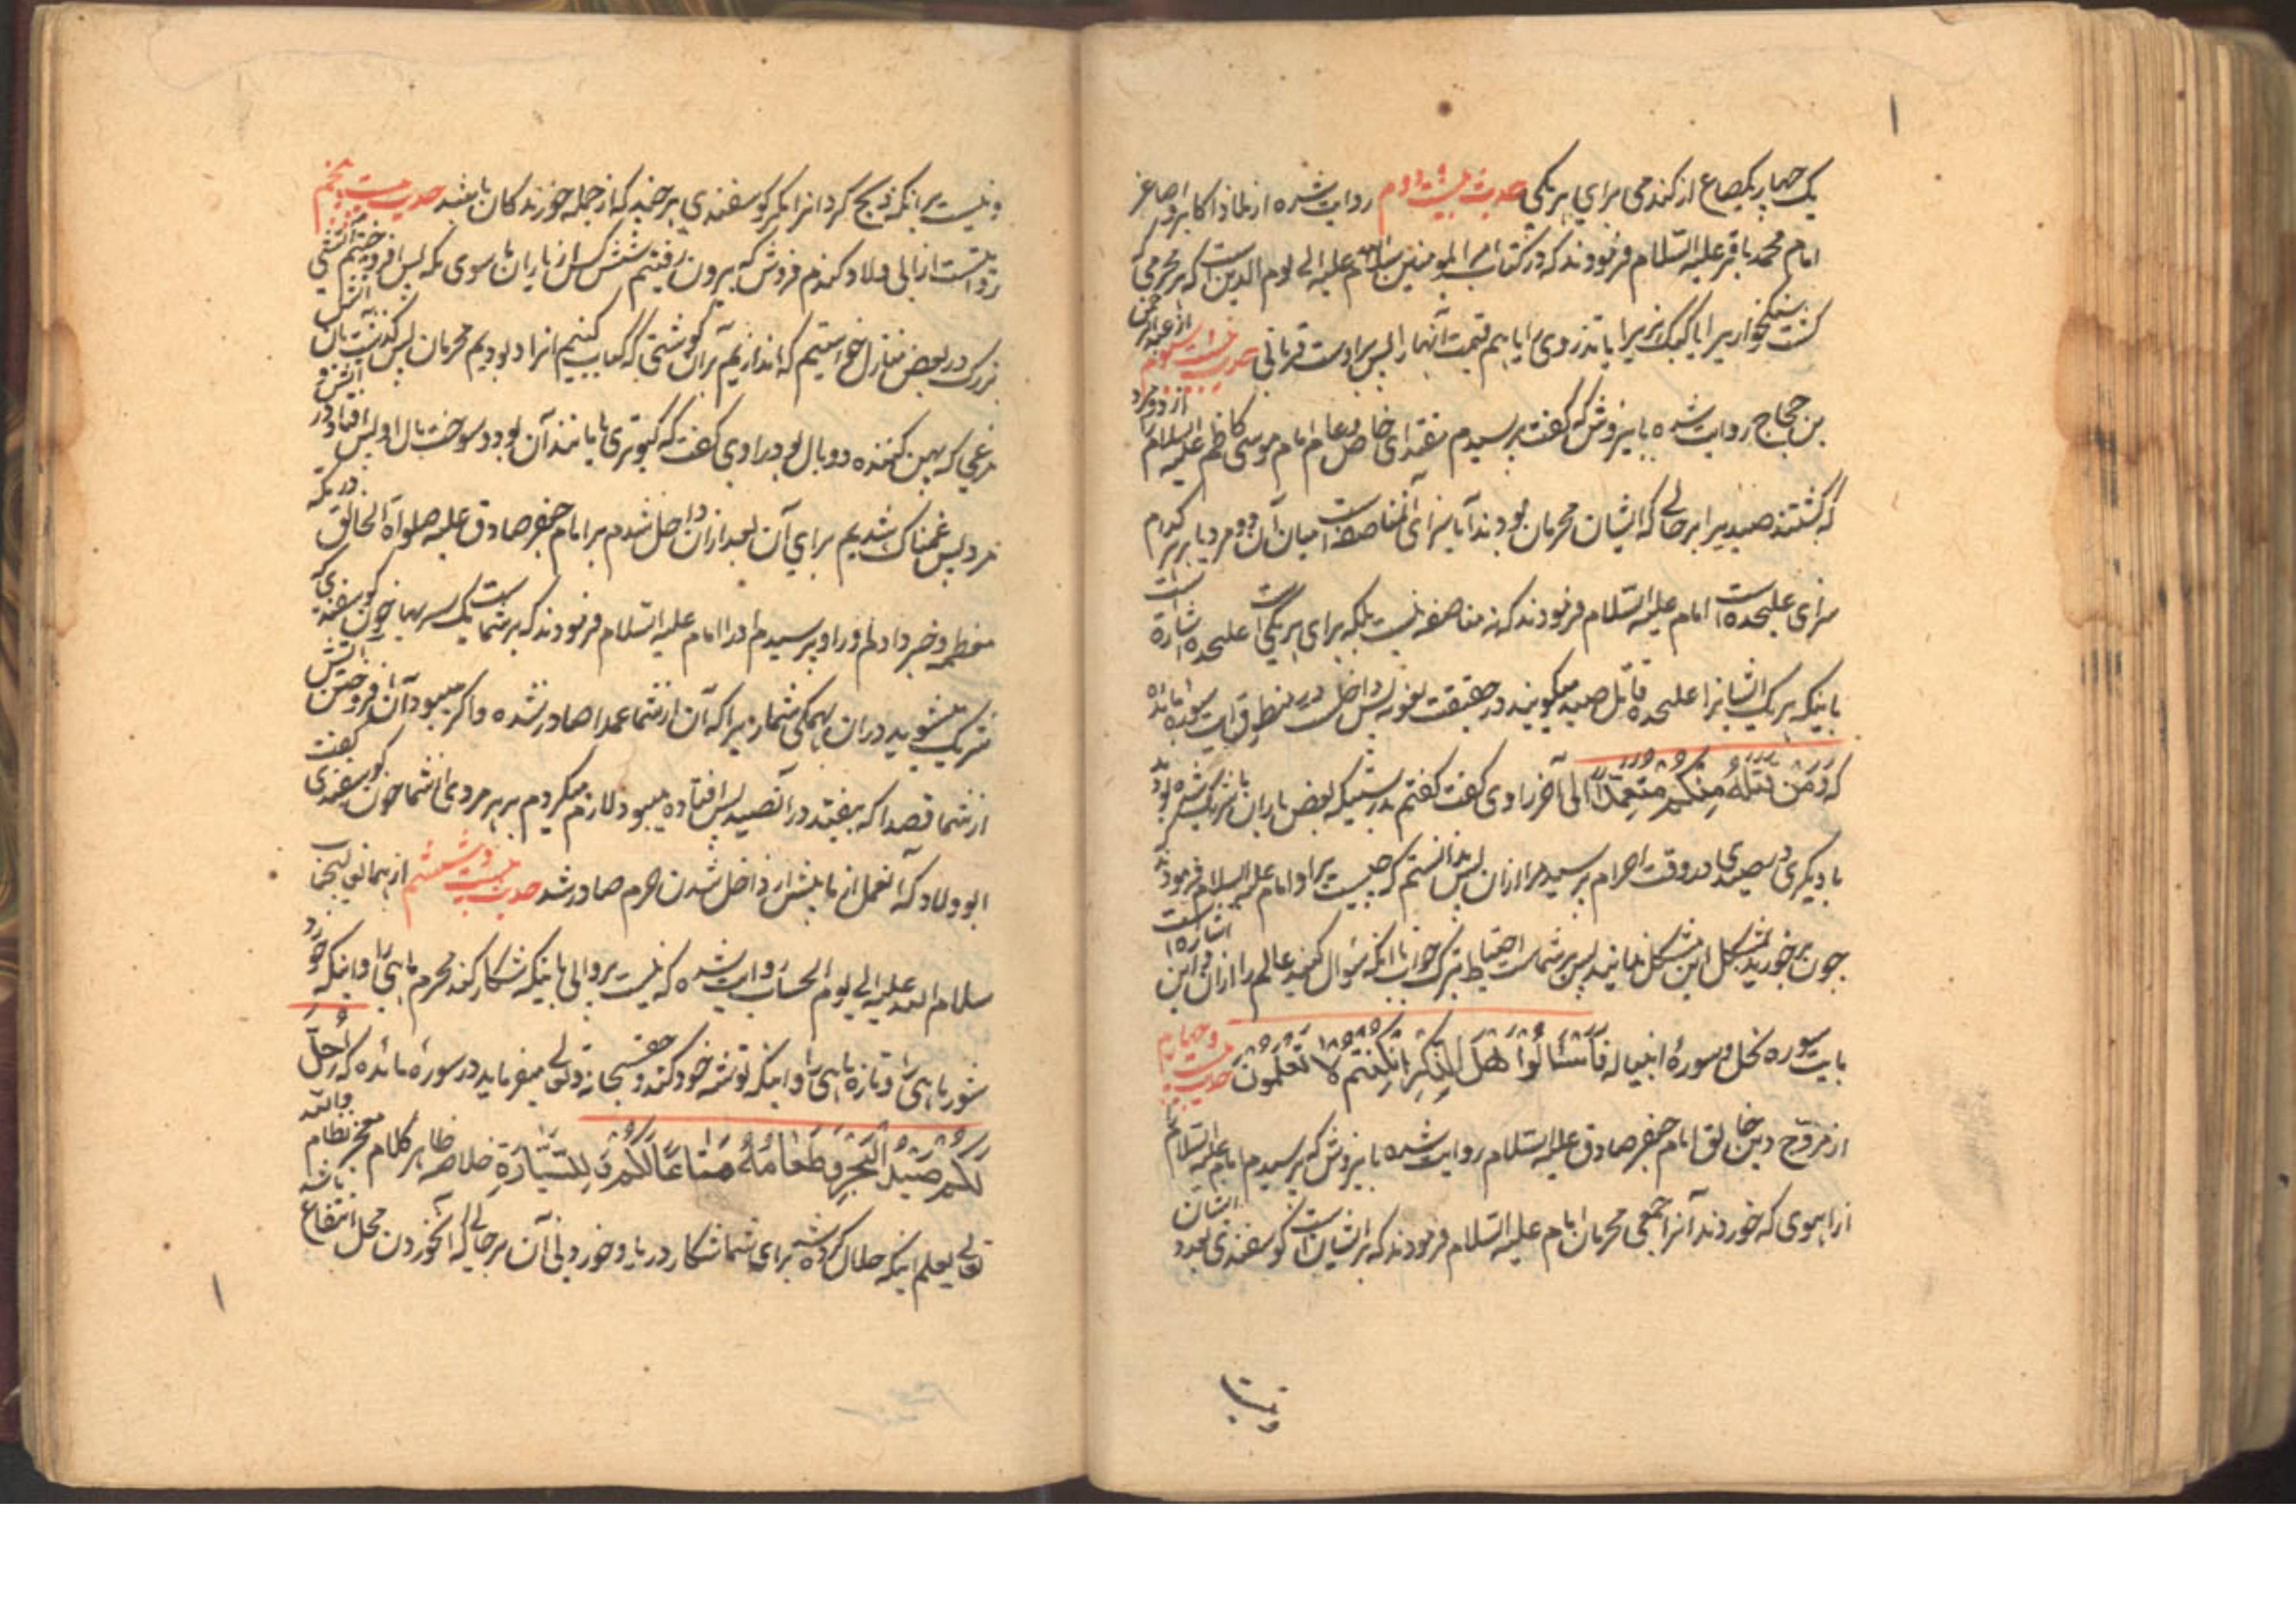 یک چهار یکصاع از گندمی برای هر یکی حدیث بیست و دوم روایت شده از ملاذ اکابر و اصاغر
امام محمد باقر علیه السلام فرمودند که در کتاب امیر المومنین سلام الله علیه الی یوم الدین است که هر محرمی که
کشت سنگخواریرا یا کبک نریرا یا تذروی را یا هم قیمت آنها را پس براوست قربانی حدیث بیست و سیوم از عبدالرحمن
بن حجاج روایت شده باینروش که گفت پرسیدم مقتدای خاص و عام امام موسی کاظم علیه السلام را از دو مرد
که کشتند صیدیرا بر حالی که ایشان محرمان بودند آیا سزای آن مناصفه است میان آن دو مرد یا بر هر کدام
سزای علیحده است امام علیه السلام فرمودند که نه مناصفه نیست بلکه برای هر یکی علیحده است اشارة است
باینکه هر یک ایشانرا علیحده قاتل صید میگویند در حقیقت لغویه پس داخل در منطوق آیت سوره مائده
که وَمَن قَتَلَهُ مِنكُم مُتَعَمِّدًا الی آخر راوی گفت گفتم بدرستیکه بعض یاران ما شریک شده بود
با دیگری در صیدی در وقت احرام پرسید مرا ازان پس ندانستم که چیست بر او امام علیه السلام فرمودند که
چون برخورید بمثل این مشکل نمانید پس بر شماست احتیاط بترک جواب تا آنکه سؤال کنید عالم را ازان و این اشاره است
بایت سوره نحل و سورهٔ انبیا له فَاسْئَلُوا أَهْلَ الذِّكْرِ إِن كُنتُم لَا تَعْلَمُونَ حدیث بیست و چهارم
از مروج دین خالق امام جعفر صادق علیه السلام روایت شده باینروش که پرسیدم امام علیه السلام را
از آهوی که خوردند آنرا جمعی محرمان امام علیه السلام فرمودند که بر ایشان است گوسفندی بعدد ایشان
و نیست
و نیست بر آنکه ذبح کرد آنرا مگر گوسفندی هر چند که از جمله خورندکان باشد حدیث بیست و پنجم
روایتست از ابی ولاد گندم فروش که بیرون رفتیم شش کس از یاران ما سوی مکه پس افروختیم آتشی
بزرگ در بعض منازل خواستیم که اندازیم بر آن گوشتی که کباب کنیم آنرا و بودیم محرمان پس گذشت بآن آتش
مرغی که پهن کننده دو بال بود راوی گفت که کبوتری یا مانند آن بود و سوخت بال او پس افتاد در آتش و
مرد پس غمناک شدیم برای آن بعد ازان داخل شدم بر امام جعفر صادق علیه صلوات الخالق در مکه
معظمه و خبر دادم او را و پرسیدم او را امام علیه السلام فرمودند که بر شماست یک سر بها خون گوسفندی که
شریک میشوید دران همگی شما زیرا که آن از شما عمدا صادر نشده و اگر میبود آن افروختن آتش
از شما قصدا که بیفتد در آن صید پس افتاده میبود لازم میکردم بر هر مردی از شما خون گوسفندی گفت
ابو ولاد که آنعمل از ما پیش از داخل شدن حرم صادر شد حدیث بیست و ششم از همانجناب
سلام الله علیه الی یوم الحساب روایت شده که نیست پروائی باینکه شکار کند محرم ماهی را و اینکه خورد
شور ماهی را و تازه ماهی را و اینکه توشه خود کند و حقسبحانه و تعالی میفرماید در سورهٔ مائده که أُحِلَّ
لَكُم صَيْدُ الْبَحْرِ وَطَعَامُهُ مَتَاعًا لَكُم وَلِلسَّيَّارَةِ خلاصه ظاهر کلام معجز نظام والله
تعالی یعلم اینکه حلال کرده شد برای شما شکار دریا و خوردنی آن بر حالی که آنخوردن محل انتفاع باشد